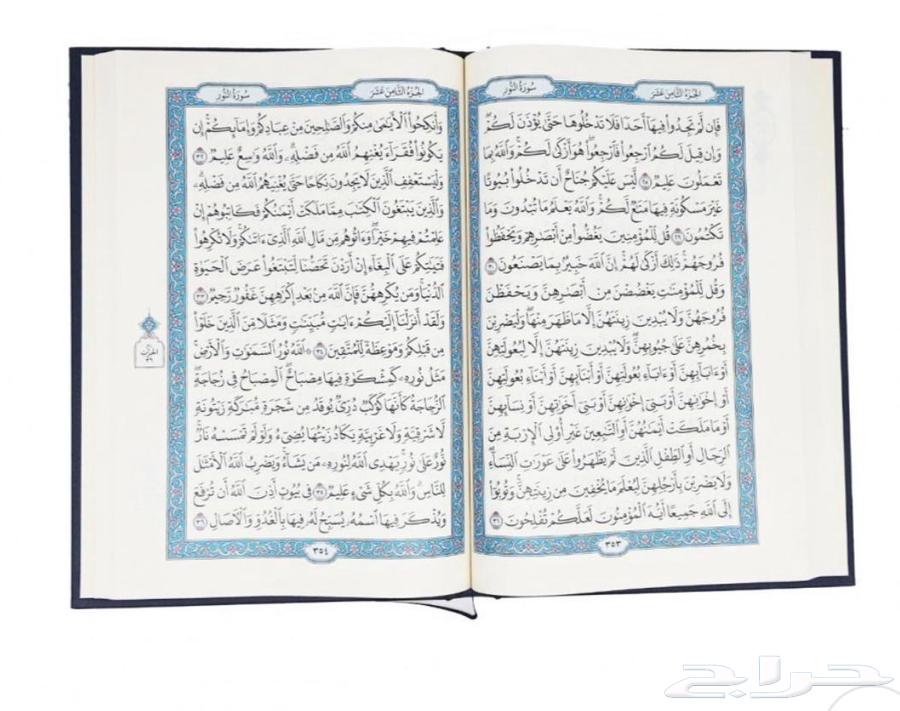 الجزء الثامن عشر
سورة النور
فَإِن لَّمْ تَجِدُوا۟ فِيهَآ أَحَدًا فَلَا تَدْخُلُوهَا حَتَّىٰ يُؤْذَنَ لَكُمْ ۖ
وَإِن قِيلَ لَكُمُ ٱرْجِعُوا۟ فَٱرْجِعُوا۟ ۖ هُوَ أَزْكَىٰ لَكُمْ ۚ وَٱللَّهُ بِمَا
تَعْمَلُونَ عَلِيمٌ ﴿٢٨﴾ لَّيْسَ عَلَيْكُمْ جُنَاحٌ أَن تَدْخُلُوا۟ بُيُوتًا
غَيْرَ مَسْكُونَةٍ فِيهَا مَتَٰعٌ لَّكُمْ ۚ وَٱللَّهُ يَعْلَمُ مَا تُبْدُونَ وَمَا
تَكْتُمُونَ ﴿٢٩﴾ قُل لِّلْمُؤْمِنِينَ يَغُضُّوا۟ مِنْ أَبْصَٰرِهِمْ وَيَحْفَظُوا۟
فُرُوجَهُمْ ۚ ذَٰلِكَ أَزْكَىٰ لَهُمْ ۗ إِنَّ ٱللَّهَ خَبِيرٌۢ بِمَا يَصْنَعُونَ ﴿٣٠﴾
وَقُل لِّلْمُؤْمِنَٰتِ يَغْضُضْنَ مِنْ أَبْصَٰرِهِنَّ وَيَحْفَظْنَ
فُرُوجَهُنَّ وَلَا يُبْدِينَ زِينَتَهُنَّ إِلَّا مَا ظَهَرَ مِنْهَا ۖ وَلْيَضْرِبْنَ
بِخُمُرِهِنَّ عَلَىٰ جُيُوبِهِنَّ ۖ وَلَا يُبْدِينَ زِينَتَهُنَّ إِلَّا لِبُعُولَتِهِنَّ
أَوْ ءَابَآئِهِنَّ أَوْ ءَابَآءِ بُعُولَتِهِنَّ أَوْ أَبْنَآئِهِنَّ أَوْ أَبْنَآءِ بُعُولَتِهِنَّ
أَوْ إِخْوَٰنِهِنَّ أَوْ بَنِىٓ إِخْوَٰنِهِنَّ أَوْ بَنِىٓ أَخَوَٰتِهِنَّ أَوْ نِسَآئِهِنَّ
أَوْ مَا مَلَكَتْ أَيْمَٰنُهُنَّ أَوِ ٱلتَّٰبِعِينَ غَيْرِ أُو۟لِى ٱلْإِرْبَةِ مِنَ
ٱلرِّجَالِ أَوِ ٱلطِّفْلِ ٱلَّذِينَ لَمْ يَظْهَرُوا۟ عَلَىٰ عَوْرَٰتِ ٱلنِّسَآءِ ۖ
وَلَا يَضْرِبْنَ بِأَرْجُلِهِنَّ لِيُعْلَمَ مَا يُخْفِينَ مِن زِينَتِهِنَّ ۚ وَتُوبُوٓا۟
إِلَى ٱللَّهِ جَمِيعًا أَيُّهَ ٱلْمُؤْمِنُونَ لَعَلَّكُمْ تُفْلِحُونَ ﴿٣١﴾
٣٥٣
الجزء الثامن عشر
سورة النور
وَأَنكِحُوا۟ ٱلْأَيَٰمَىٰ مِنكُمْ وَٱلصَّٰلِحِينَ مِنْ عِبَادِكُمْ وَإِمَآئِكُمْ ۚ إِن
يَكُونُوا۟ فُقَرَآءَ يُغْنِهِمُ ٱللَّهُ مِن فَضْلِهِۦ ۗ وَٱللَّهُ وَٰسِعٌ عَلِيمٌ ﴿٣٢﴾
وَلْيَسْتَعْفِفِ ٱلَّذِينَ لَا يَجِدُونَ نِكَاحًا حَتَّىٰ يُغْنِيَهُمُ ٱللَّهُ مِن فَضْلِهِۦ ۗ
وَٱلَّذِينَ يَبْتَغُونَ ٱلْكِتَٰبَ مِمَّا مَلَكَتْ أَيْمَٰنُكُمْ فَكَاتِبُوهُمْ إِنْ
عَلِمْتُمْ فِيهِمْ خَيْرًا ۖ وَءَاتُوهُم مِّن مَّالِ ٱللَّهِ ٱلَّذِىٓ ءَاتَىٰكُمْ ۚ وَلَا تُكْرِهُوا۟
فَتَيَٰتِكُمْ عَلَى ٱلْبِغَآءِ إِنْ أَرَدْنَ تَحَصُّنًا لِّتَبْتَغُوا۟ عَرَضَ ٱلْحَيَوٰةِ
ٱلدُّنْيَا ۚ وَمَن يُكْرِههُّنَّ فَإِنَّ ٱللَّهَ مِنۢ بَعْدِ إِكْرَٰهِهِنَّ غَفُورٌ رَّحِيمٌ ﴿٣٣﴾
وَلَقَدْ أَنزَلْنَآ إِلَيْكُمْ ءَايَٰتٍ مُّبَيِّنَٰتٍ وَمَثَلًا مِّنَ ٱلَّذِينَ خَلَوْا۟
مِن قَبْلِكُمْ وَمَوْعِظَةً لِّلْمُتَّقِينَ ﴿٣٤﴾ ۞ ٱللَّهُ نُورُ ٱلسَّمَٰوَٰتِ وَٱلْأَرْضِ ۚ
مَثَلُ نُورِهِۦ كَمِشْكَوٰةٍ فِيهَا مِصْبَاحٌ ۖ ٱلْمِصْبَاحُ فِى زُجَاجَةٍ ۖ
ٱلزُّجَاجَةُ كَأَنَّهَا كَوْكَبٌ دُرِّىٌّ يُوقَدُ مِن شَجَرَةٍ مُّبَٰرَكَةٍ زَيْتُونَةٍ
لَّا شَرْقِيَّةٍ وَلَا غَرْبِيَّةٍ يَكَادُ زَيْتُهَا يُضِىٓءُ وَلَوْ لَمْ تَمْسَسْهُ نَارٌ ۚ
نُّورٌ عَلَىٰ نُورٍ ۗ يَهْدِى ٱللَّهُ لِنُورِهِۦ مَن يَشَآءُ ۚ وَيَضْرِبُ ٱللَّهُ ٱلْأَمْثَٰلَ
لِلنَّاسِ ۗ وَٱللَّهُ بِكُلِّ شَىْءٍ عَلِيمٌ ﴿٣٥﴾ فِى بُيُوتٍ أَذِنَ ٱللَّهُ أَن تُرْفَعَ
وَيُذْكَرَ فِيهَا ٱسْمُهُۥ يُسَبِّحُ لَهُۥ فِيهَا بِٱلْغُدُوِّ وَٱلْءَاصَالِ ﴿٣٦﴾
٣٥٤
الحزب
حراج